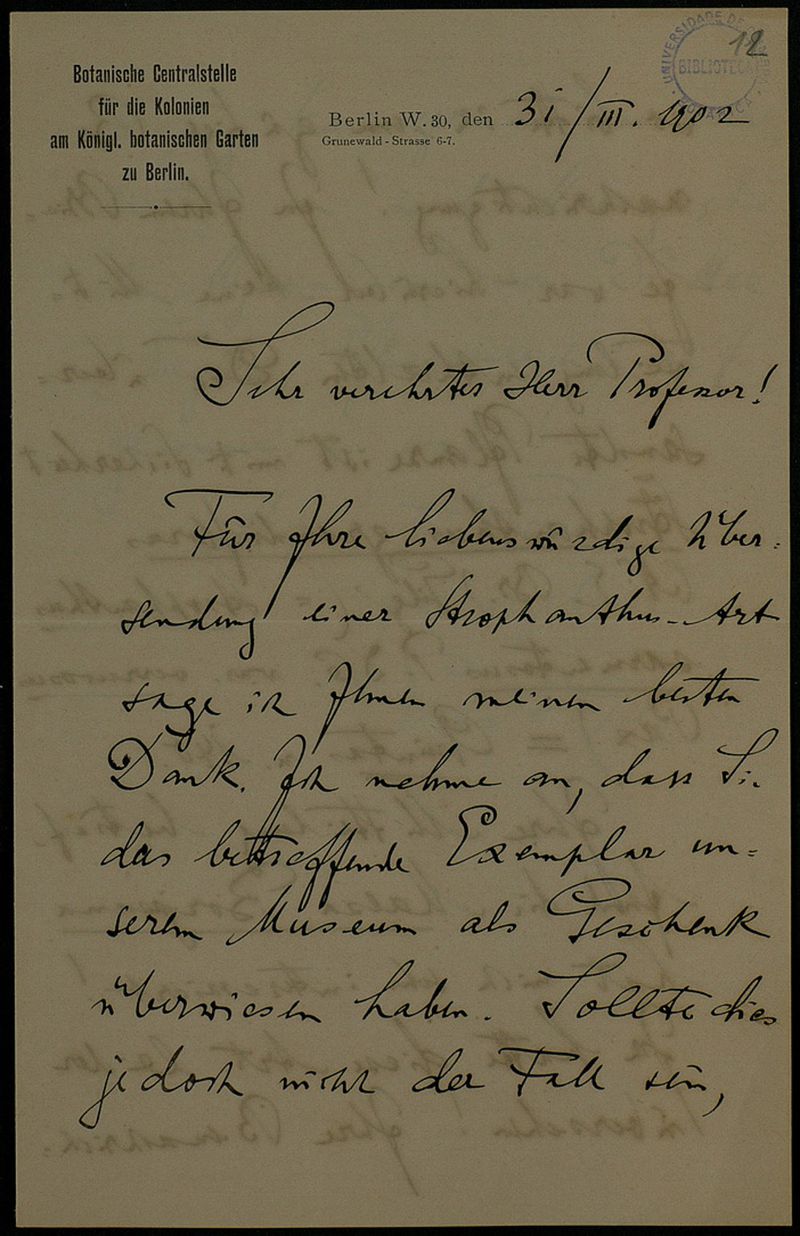 Botanische Centralstelle
für die Kolonien
am Königl. botanischen Garten
zu Berlin.
12
UNIVERSIDADE DE
BIBLIOTECA
Berlin W. 30, den 31/III. 1902
Grunewald-Strasse 6-7.
Sehr verehrter Herr Professor!
Für Ihre liebenswürdige Über-
sendung einer Strophanthus-Art
sage ich Ihnen meinen besten
Dank. Ich nehme an, dass Sie
das betreffende Exemplar un-
serem Museum als Geschenk
überwiesen haben. Sollte dies
jedoch nicht der Fall sein,